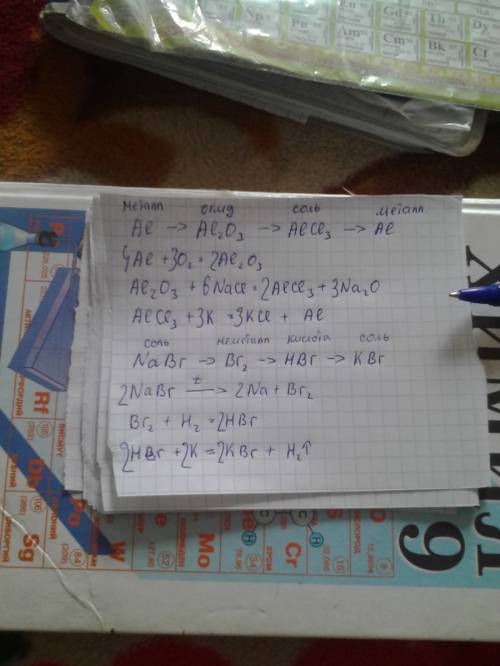 Np
Gd
Tb
Dy
Pu
Am
Cm
Bk
Cf
металл оксид соль металл
Al → Al₂O₃ → AlCl₃ → Al
4Al + 3O₂ = 2Al₂O₃
Al₂O₃ + 6NaCl = 2AlCl₃ + 3Na₂O
AlCl₃ + 3K = 3KCl + Al
соль неметалл кислота соль
NaBr → Br₂ → HBr → KBr
2NaBr —t→ 2Na + Br₂
Br₂ + H₂ = 2HBr
2HBr + 2K = 2KBr + H₂↑
Rf
Db
Sg
Po
W
Mo
Cr
H
9